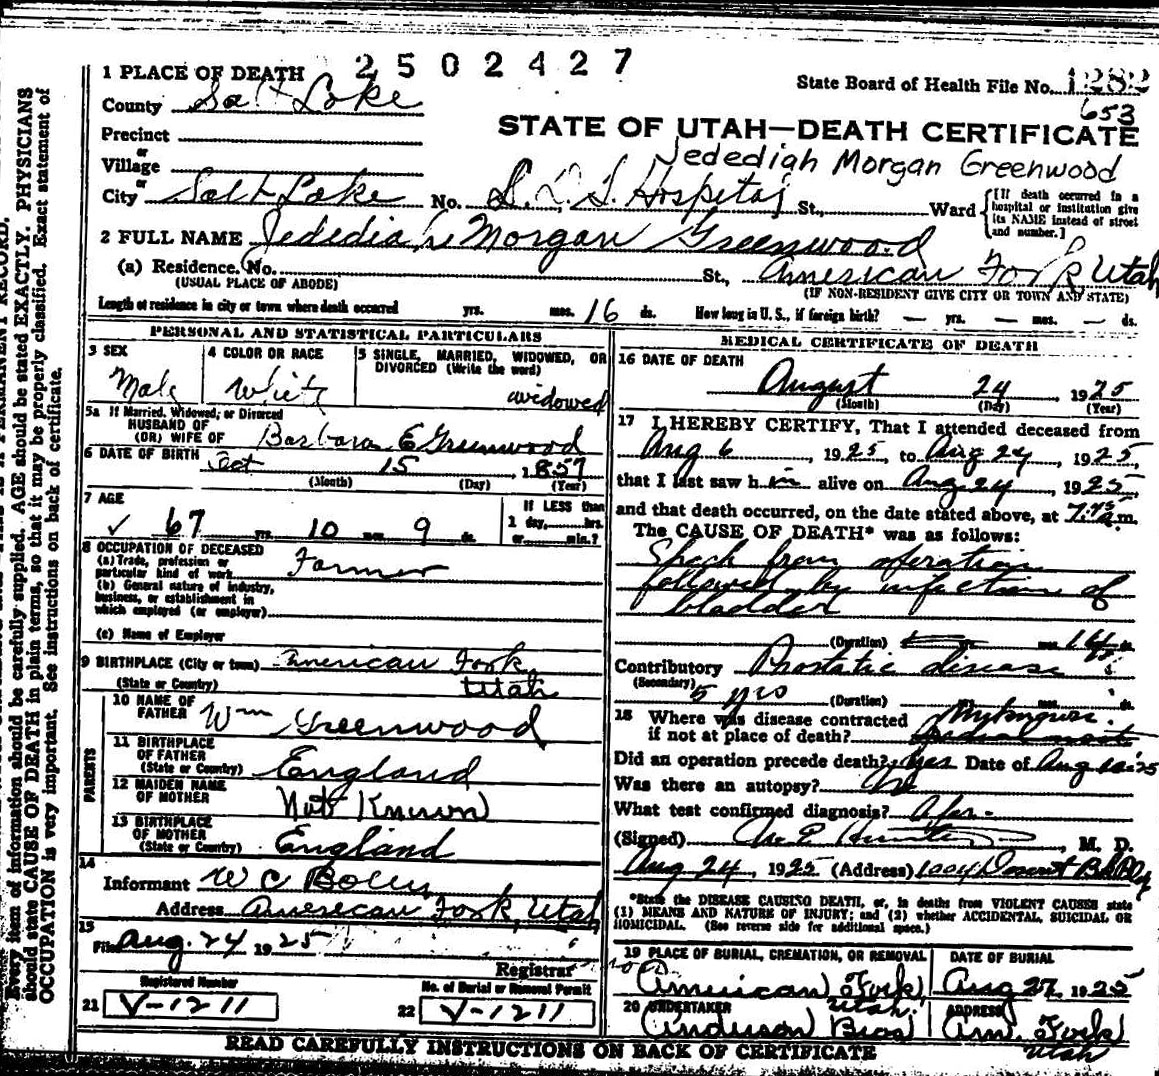 2502427
1 PLACE OF DEATH
State Board of Health File No. 1282
County Salt Lake
653
Precinct
STATE OF UTAH—DEATH CERTIFICATE
or
Village
Jedediah Morgan Greenwood
or
City Salt Lake No. L. D. S. Hospital St., Ward
[If death occurred in a hospital or institution give its NAME instead of street and number.]
2 FULL NAME Jedediah Morgan Greenwood
(a) Residence. No. St., American Fork, Utah
(USUAL PLACE OF ABODE)
(IF NON-RESIDENT GIVE CITY OR TOWN AND STATE)
Length of residence in city or town where death occurred yrs. mos. 16 ds. How long in U. S., if foreign birth? — yrs. — mos. — ds.
PERSONAL AND STATISTICAL PARTICULARS
3 SEX
Male
4 COLOR OR RACE
White
5 SINGLE, MARRIED, WIDOWED, OR DIVORCED (Write the word)
widowed
5a If Married, Widowed, or Divorced
HUSBAND OF
(OR) WIFE OF Barbara E Greenwood
6 DATE OF BIRTH Oct 15 1857
(Month) (Day) (Year)
7 AGE
✓ 67 yrs. 10 mos. 9 ds.
If LESS than
1 day, hrs.
or min.?
8 OCCUPATION OF DECEASED
(a) Trade, profession or
particular kind of work Farmer
(b) General nature of industry,
business, or establishment in
which employed (or employer)
(c) Name of Employer
9 BIRTHPLACE (City or town) American Fork
(State or Country) Utah
PARENTS
10 NAME OF
FATHER Wm Greenwood
11 BIRTHPLACE
OF FATHER
(State or Country) England
12 MAIDEN NAME
OF MOTHER Not Known
13 BIRTHPLACE
OF MOTHER
(State or Country) England
14
Informant W C
Address American Fork, Utah
15
Filed Aug. 24 1925
Registrar
Registered Number
No. of Burial or Removal Permit
21 V-1211
22 V-1211
MEDICAL CERTIFICATE OF DEATH
16 DATE OF DEATH
August 24 1925
(Month) (Day) (Year)
17 I HEREBY CERTIFY, That I attended deceased from
Aug 6, 1925, to Aug 24, 1925,
that I last saw h im alive on Aug 24, 1925
and that death occurred, on the date stated above, at 7.45 a.m.
The CAUSE OF DEATH* was as follows:
Shock from operation
followed by infection of
bladder
(Duration) mos. 14 ds.
Contributory Prostatic disease
(Secondary) 5 yrs (Duration) ds.
18 Where was disease contracted
if not at place of death?
Did an operation precede death? Yes Date of Aug 10 25
Was there an autopsy? No
What test confirmed diagnosis?
(Signed) M. D.
Aug 24, 1925 (Address) 1004 Deseret Bk Bldg
*State the DISEASE CAUSING DEATH, or, in deaths from VIOLENT CAUSES state
(1) MEANS AND NATURE OF INJURY; and (2) whether ACCIDENTAL, SUICIDAL OR
HOMICIDAL. (See reverse side for additional space.)
19 PLACE OF BURIAL, CREMATION, OR REMOVAL
American Fork Utah.
DATE OF BURIAL
Aug 27, 1925
20 UNDERTAKER
Anderson Bros
ADDRESS
Am. Fork Utah
READ CAREFULLY INSTRUCTIONS ON BACK OF CERTIFICATE
Every item of information should be carefully supplied. AGE should be stated EXACTLY. PHYSICIANS
should state CAUSE OF DEATH in plain terms, so that it may be properly classified. Exact statement of
OCCUPATION is very important. See instructions on back of certificate.